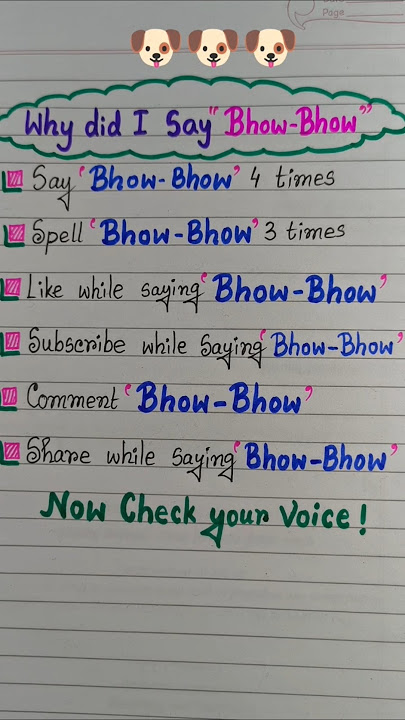 Page
Why did I Say "Bhow-Bhow"
Say 'Bhow-Bhow' 4 times
Spell 'Bhow-Bhow' 3 times
Like while saying 'Bhow-Bhow'
Subscribe while Saying 'Bhow-Bhow'
Comment 'Bhow-Bhow'
Share while saying 'Bhow-Bhow'
Now Check your Voice!